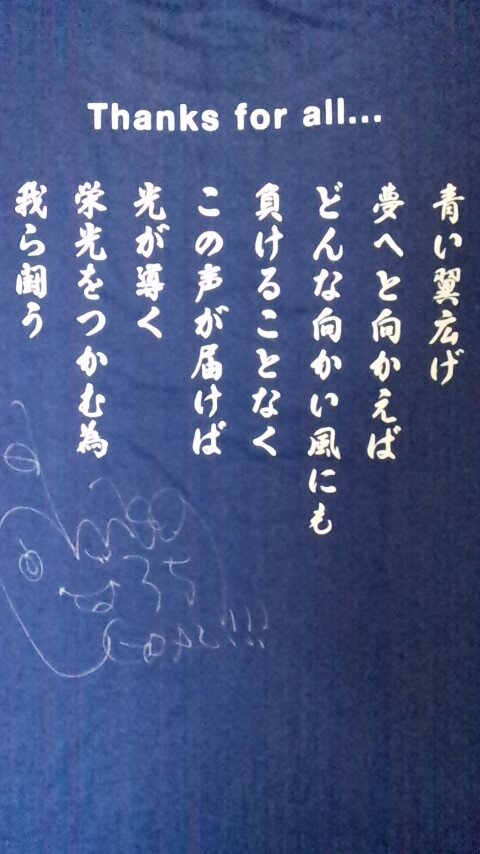 Thanks for all...
青い翼広げ
夢へと向かえば
どんな向かい風にも
負けることなく
この声が届けば
光が導く
栄光をつかむ為
我ら闘う
35
GOAL!!!